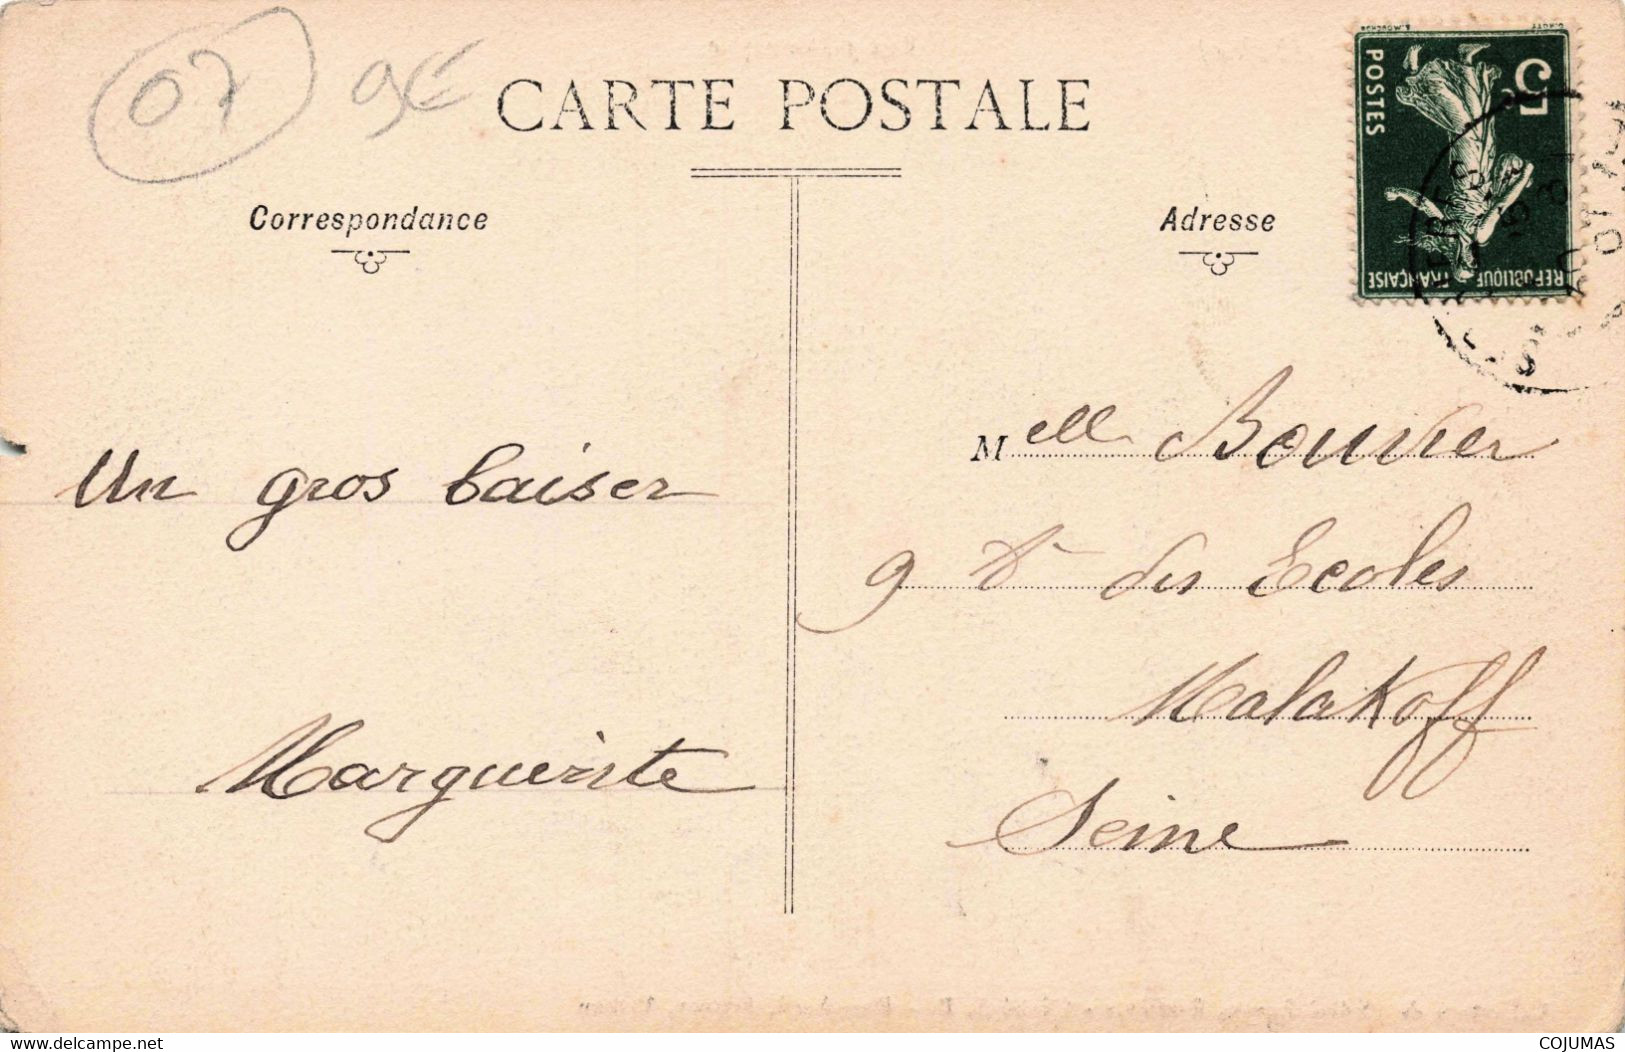 07 9€
CARTE POSTALE
Correspondance
Adresse
POSTES
5c
REPUBLIQUE FRANÇAISE
Un gros baiser
Marguerite
Mell Bouvier
9 des Ecoles
Malakoff
Seine
delcampe.net
COJUMAS